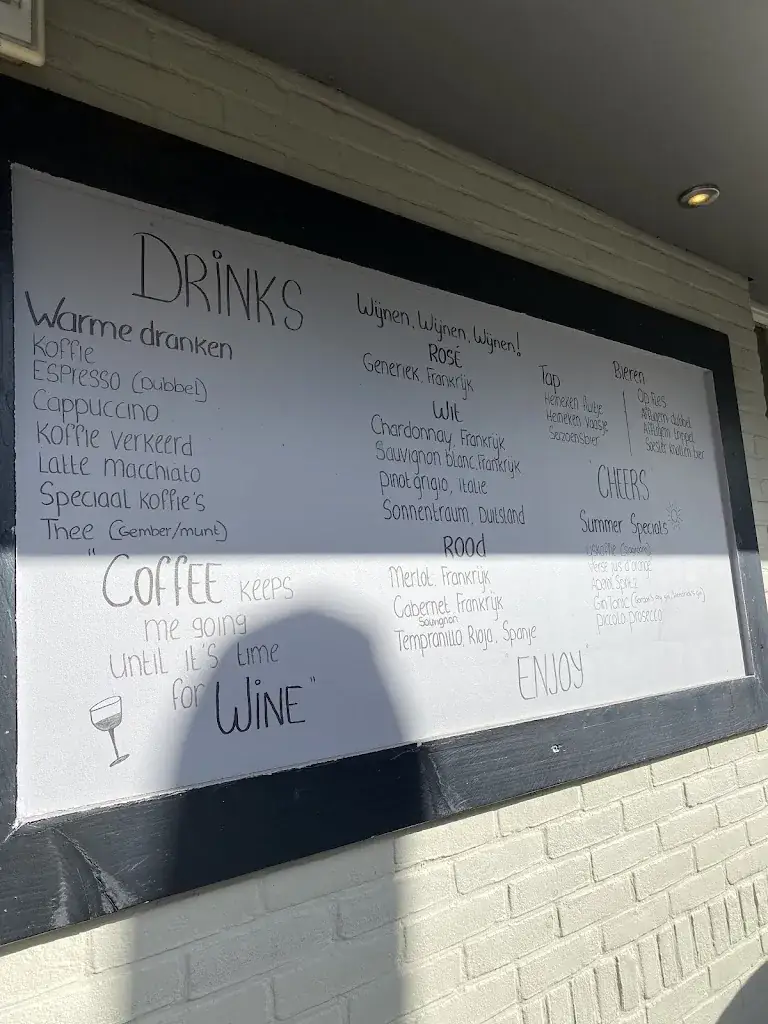 DRINKS
Warme dranken
Koffie
Espresso (Dubbel)
Cappuccino
Koffie verkeerd
Latte Macchiato
Speciaal Koffie's
Thee (Gember/munt)
"COFFEE KEEPS
me going
until it's time
for WINE"
Wijnen, Wijnen, Wijnen!
ROSÉ
Generiek, Frankrijk
Wit
Chardonnay, Frankrijk
Sauvignon blanc, Frankrijk
Pinot grigio, Italie
Sonnentraum, Duitsland
ROOd
Merlot, Frankrijk
Cabernet Sauvignon, Frankrijk
Tempranillo, Rioja, Spanje
"ENJOY"
Bieren
Tap
Heineken fluitje
Heineken vaasje
Seizoensbier
Op fles
Affligem dubbel
Affligem trippel
Soester knollen bier
"CHEERS"
Summer Specials
Verse jus d'orange
Aperol Spritz
Gin Tonic
piccolo prosecco